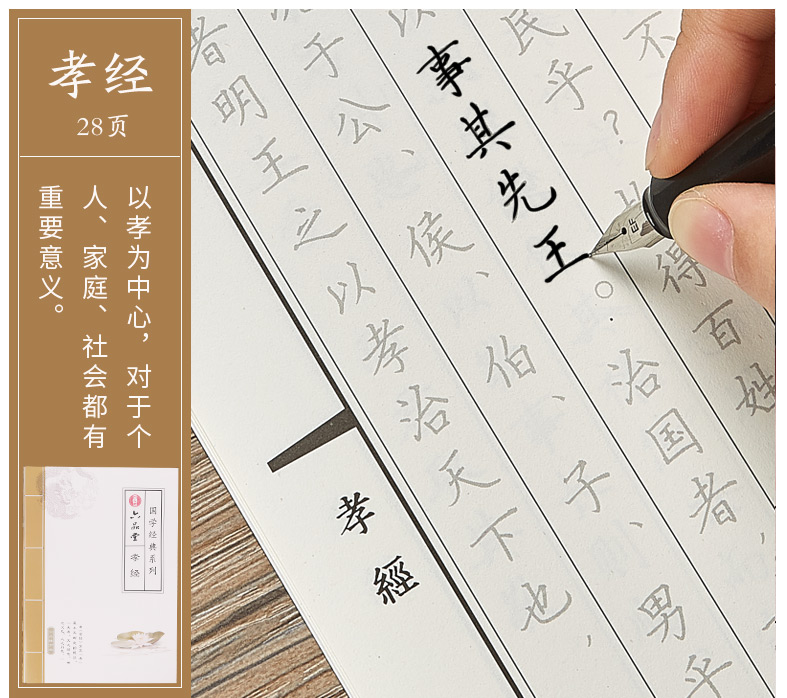 孝经
28页
以孝为中心，对于个
人、家庭、社会都有
重要意义。
国学经典系列
六品堂 孝经
者明王之以孝治天下也，
况于公、侯、伯、子、男乎
以事其先王。治国者，
民乎？
得百姓
不
孝經